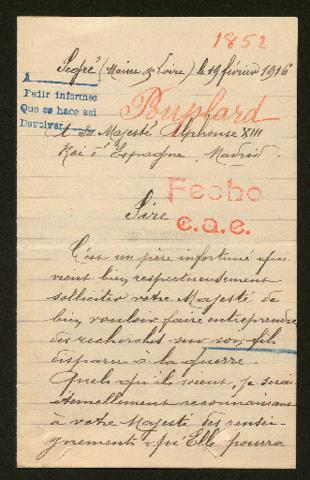 1852
Segré (Maine & Loire) le 19 février 1916
A
Pedir informes
Que se hace así
Devolver
Pouplard
A Sa Majesté Alphonse XIII
Roi d'Espagne. Madrid.
Fecho
c.a.e.
Sire
C'est un père infortuné qui
vient bien respectueusement
solliciter votre Majesté de
bien vouloir faire entreprendre
des recherches sur son fils
disparu à la guerre.
Quels qu'ils soient, je serai
éternellement reconnaissant
à votre Majesté des rensei-
gnements qu'Elle pourra